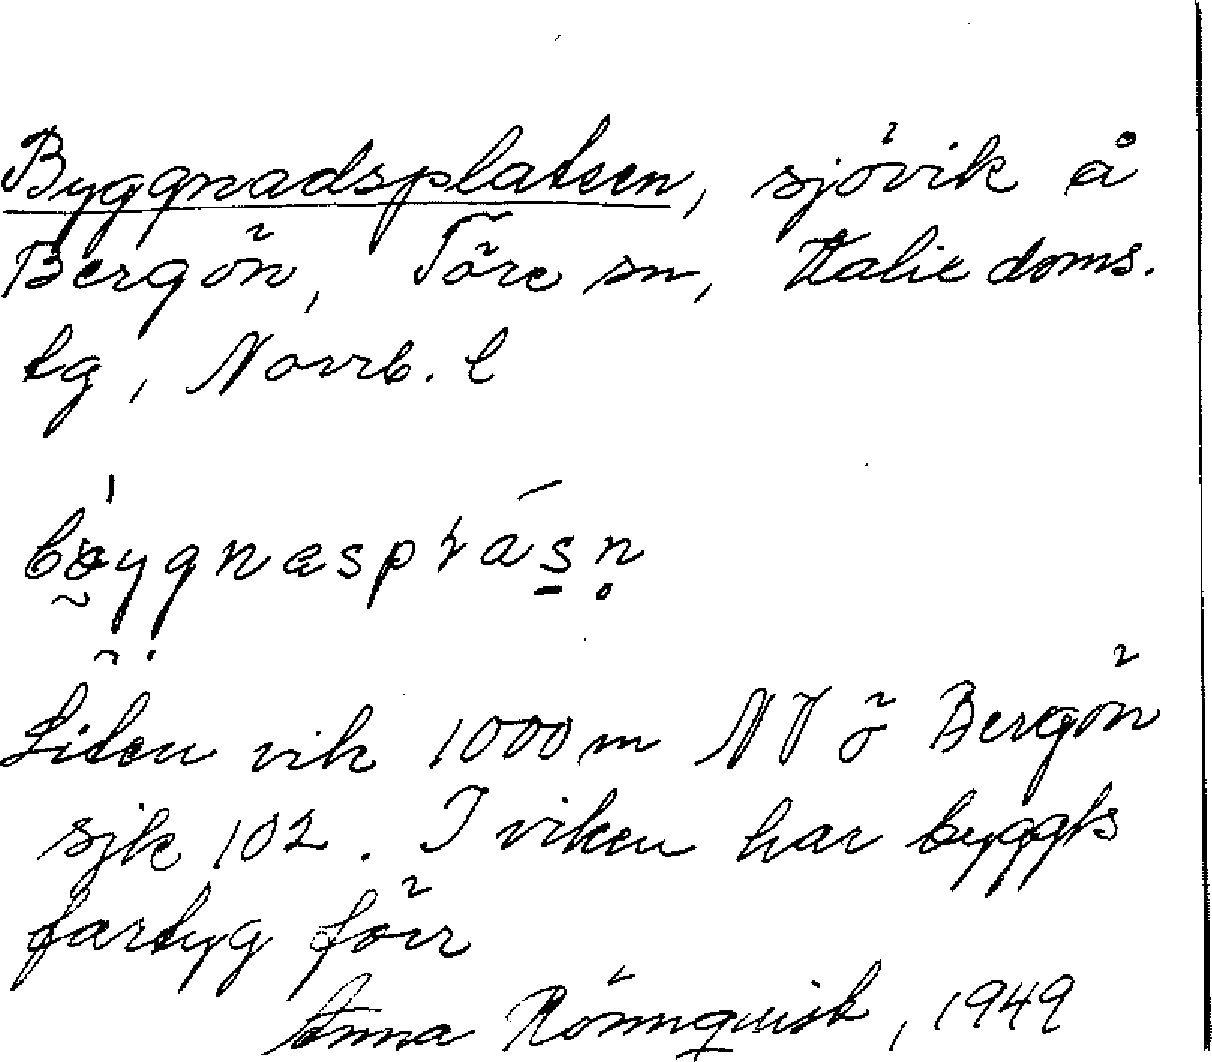 Byggnadsplatsen, sjövik å
Bergön, Töre sn, Kalix doms.
tg, Norrb. l
Liten vik 1000 m NV ö Bergön
sjk 102. I viken har byggts
fartyg förr
Anna Rönnquist, 1949